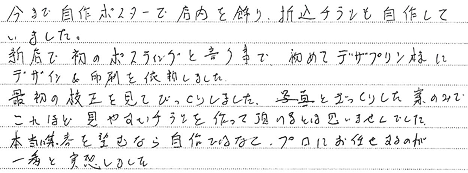 今まで自作ポスターで店内を飾り、折込チラシも自作して
いました。
新店で初のポスティングと言う事で 初めてデザプリン様に
デザイン&印刷を依頼しました
最初の校正を見てびっくりしました。写真とざっくりした案のみで
これほど見やすいチラシを作って頂けるとは思いませんでした
本当集客を望むなら自作ではなく、プロにお任せするのが
一番と実感しました